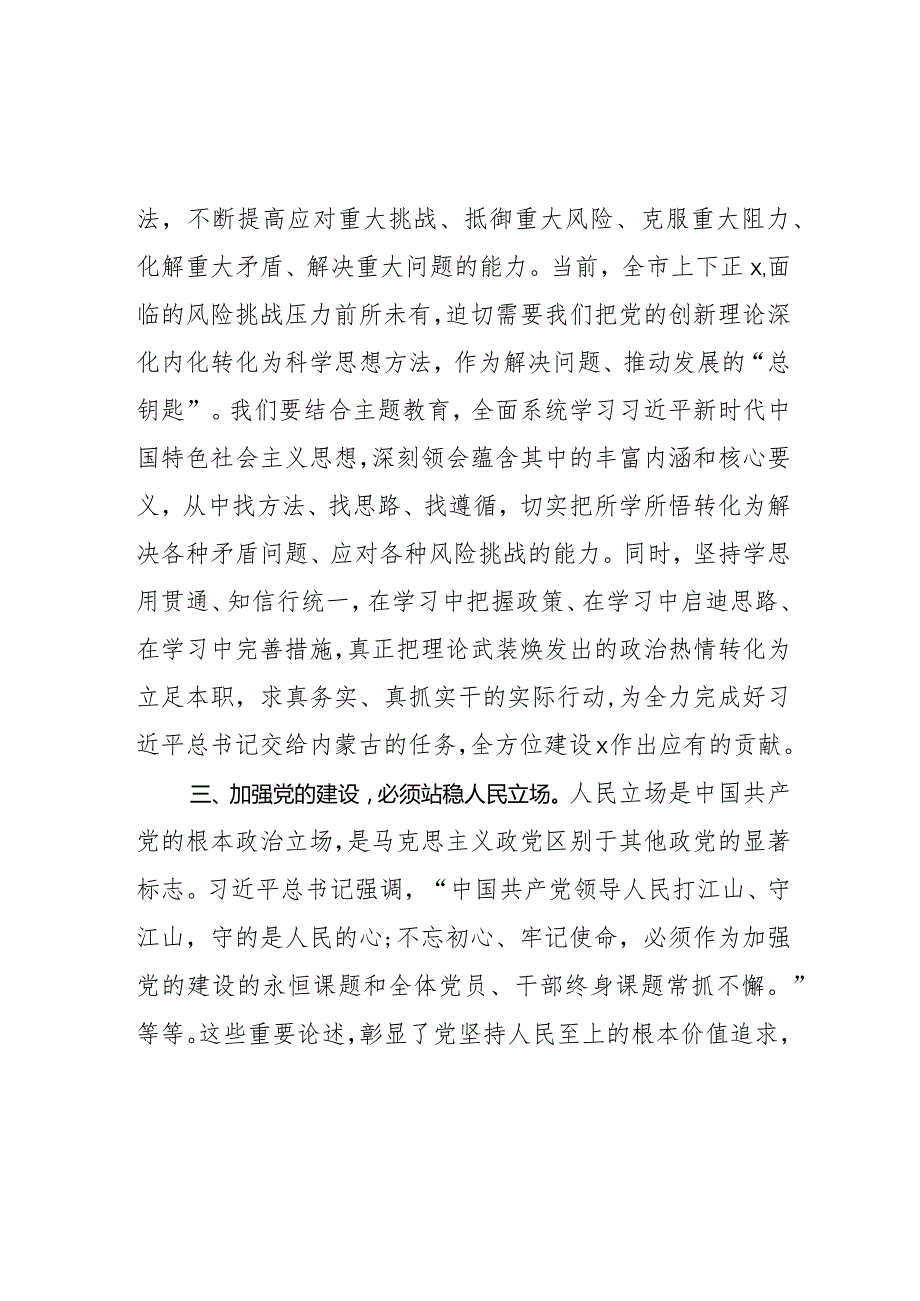 法，不断提高应对重大挑战、抵御重大风险、克服重大阻力、
化解重大矛盾、解决重大问题的能力。当前，全市上下正x,面
临的风险挑战压力前所未有，迫切需要我们把党的创新理论深
化内化转化为科学思想方法，作为解决问题、推动发展的“总
钥匙”。我们要结合主题教育，全面系统学习习近平新时代中
国特色社会主义思想，深刻领会蕴含其中的丰富内涵和核心要
义，从中找方法、找思路、找遵循，切实把所学所悟转化为解
决各种矛盾问题、应对各种风险挑战的能力。同时，坚持学思
用贯通、知信行统一，在学习中把握政策、在学习中启迪思路、
在学习中完善措施，真正把理论武装焕发出的政治热情转化为
立足本职，求真务实、真抓实干的实际行动，为全力完成好习
近平总书记交给内蒙古的任务，全方位建设x作出应有的贡献。
三、加强党的建设，必须站稳人民立场。人民立场是中国共产
党的根本政治立场，是马克思主义政党区别于其他政党的显著
标志。习近平总书记强调，“中国共产党领导人民打江山、守
江山，守的是人民的心;不忘初心、牢记使命，必须作为加强
党的建设的永恒课题和全体党员、干部终身课题常抓不懈。”
等等。这些重要论述，彰显了党坚持人民至上的根本价值追求，